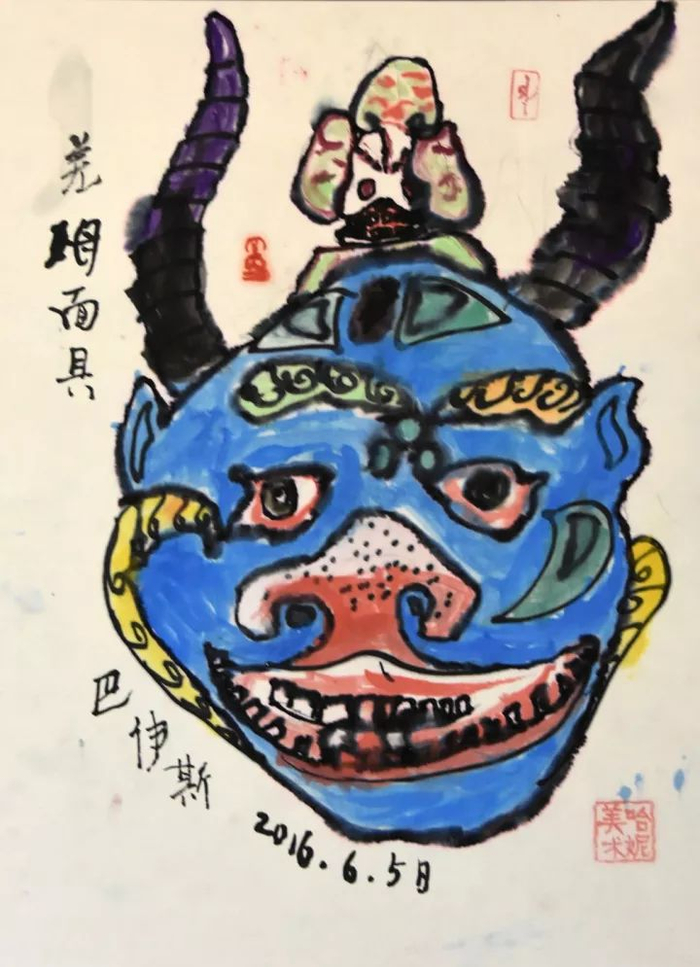 羌姆面具
巴伊斯
2016.6.5日
哈妮
美术